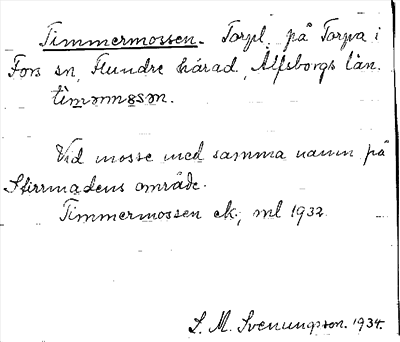 Timmermossen. Torpl. på Torpa i
Fors sn, Flundre härad, Älfsborgs län.
timərmosən.
Vid mosse med samma namn på
Stirrmadens område.
Timmermossen ek, ml 1932
S. M. Svenungsson. 1934.